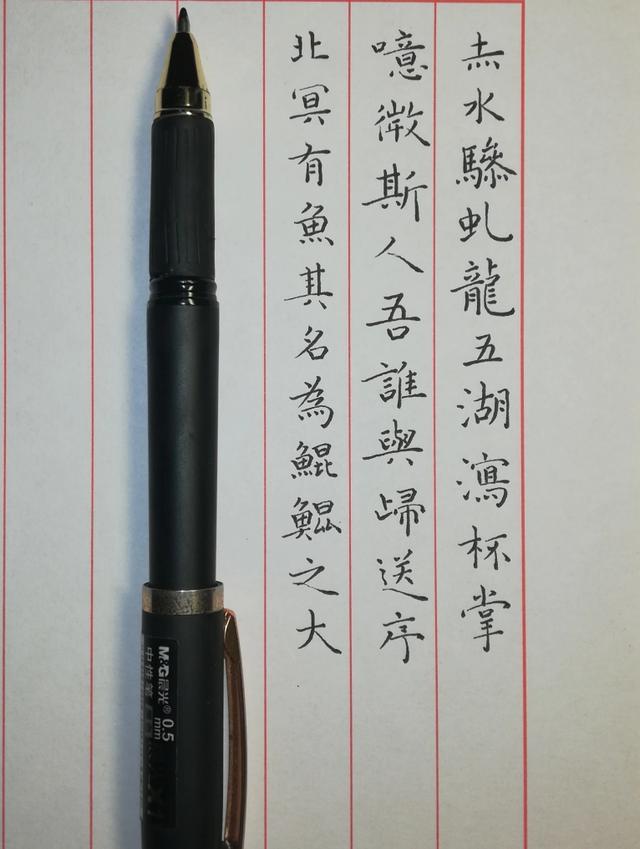 赤水驂虬龍五湖瀉杯掌
噫微斯人吾誰與歸送序
北冥有魚其名為鯤鯤之大
M&G晨光® 0.5mm
中性笔